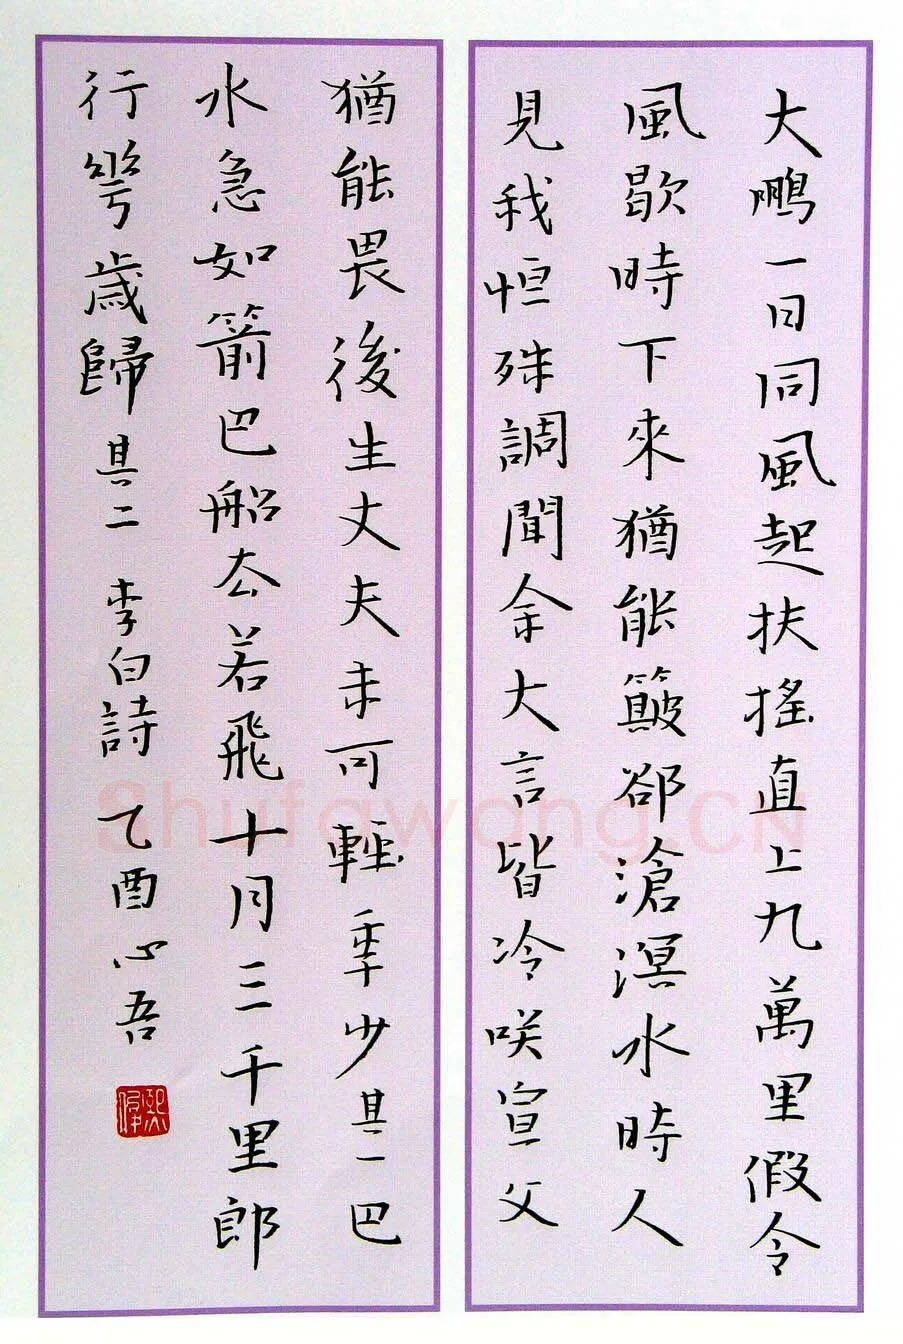 大鵬一日同風起扶搖直上九萬里假令
風歇時下來猶能簸卻滄溟水時人
見我恒殊調聞余大言皆冷咲宣父
猶能畏後生丈夫未可輕秊少其一巴
水急如箭巴船去若飛十月三千里郎
行幾歲歸其二李白詩乙酉心吾
Shufawang.CN